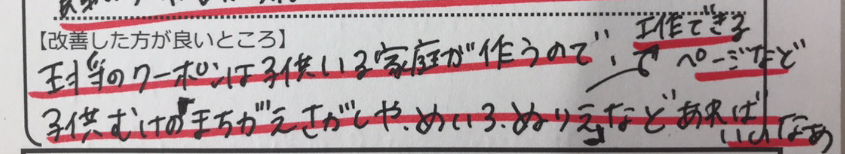 【改善した方が良いところ】
工作できる
のクーポンは子供いる家庭が作うので、ページなど
子供むけのまちがえさがしや、めいろ、ぬりえなどあれば
いいなあ